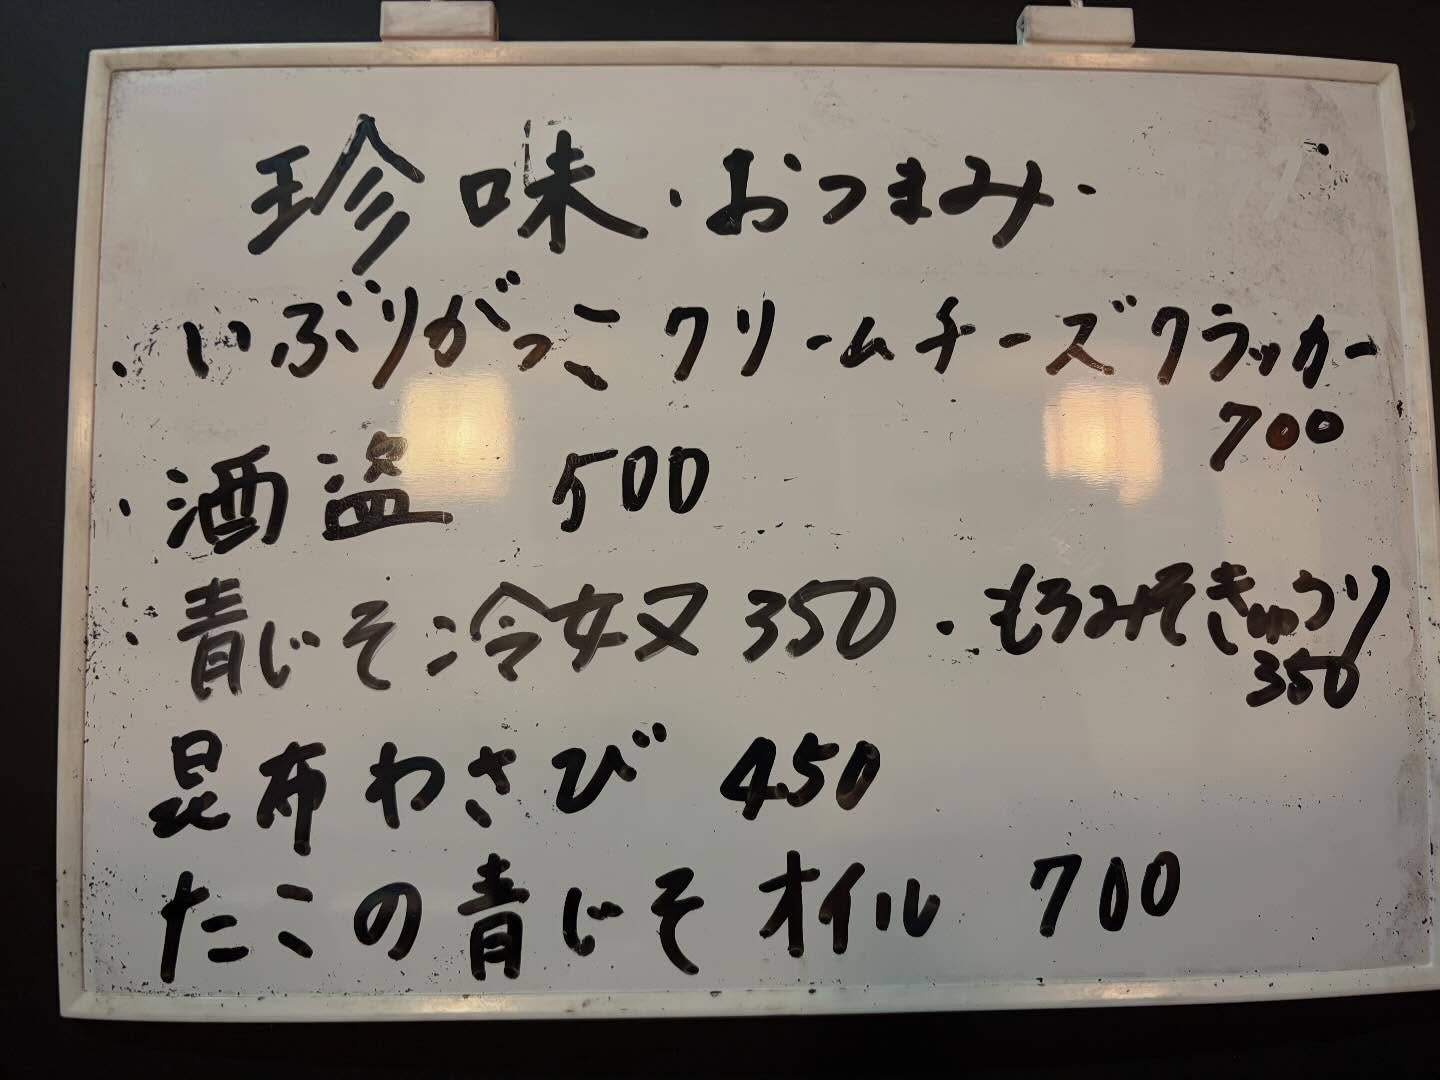 珍味・おつまみ・
・いぶりがっこクリームチーズクラッカー
700
・酒盗 500
・青じそ冷奴 350 ・もろみそきゅうり
350
昆布わさび 450
たこの青じそオイル 700